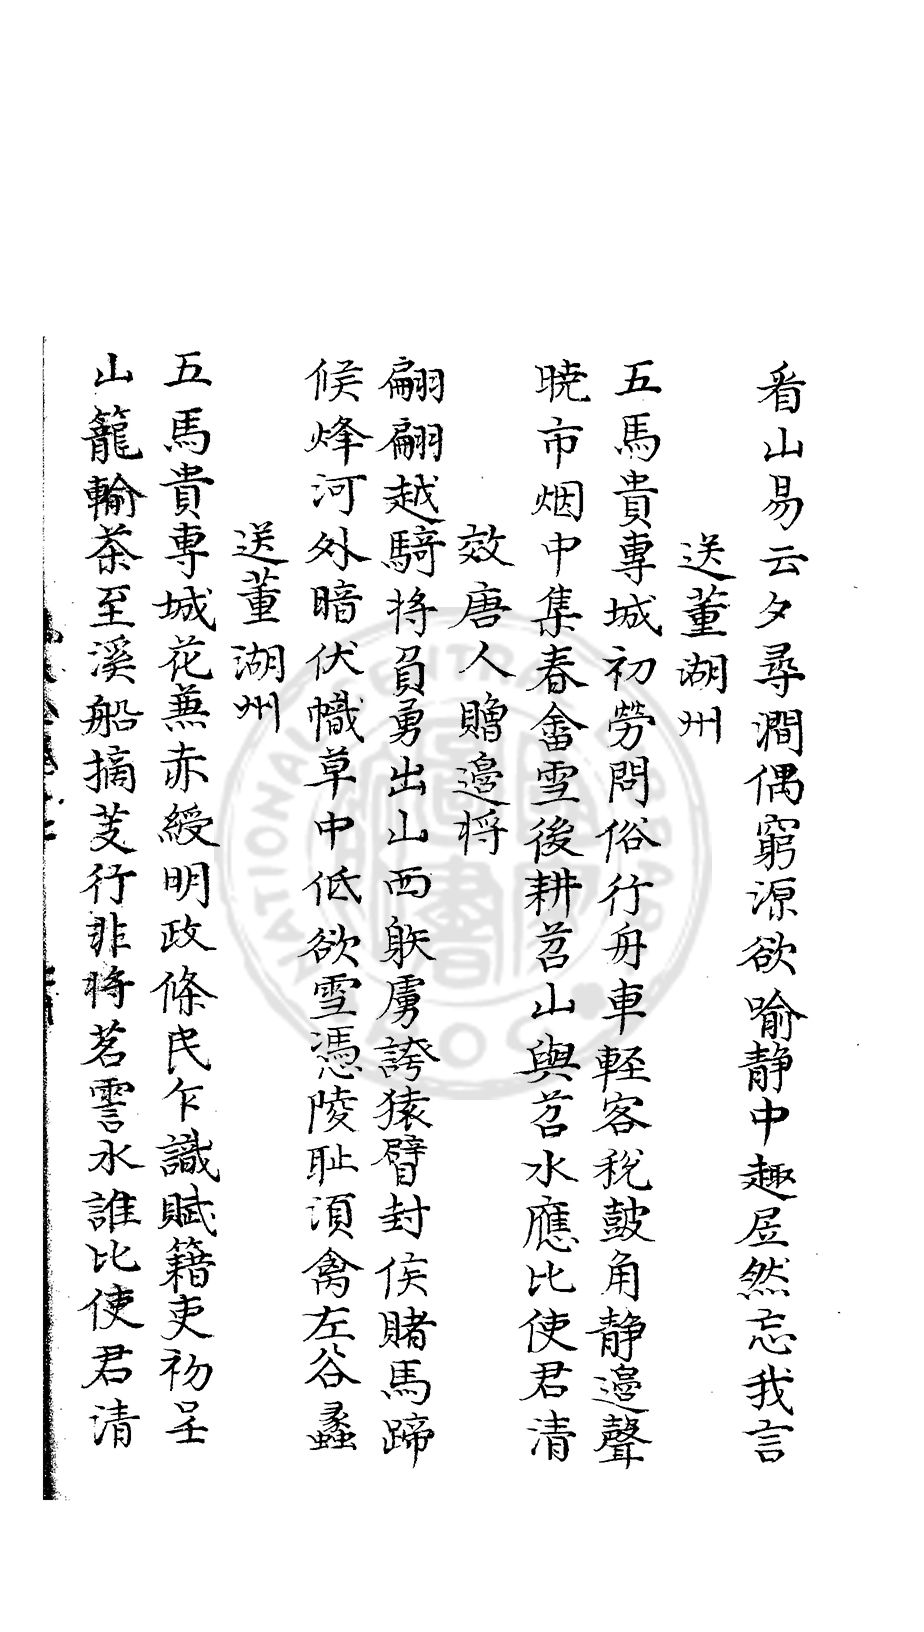 看山易云夕尋澗偶窮源欲喻静中趣居然忘我言
送董湖州
五馬貴専城初勞問俗行舟車軽客稅皷角静邉聲
暁市烟中集春畬雪後耕苕山與苕水應比使君清
效唐人贈邉将
翩翩越騎将負勇出山西躲虜誇猿臂封侯賭馬蹄
候烽河外暗伏幟草中低欲雪馮陵耻湏禽左谷蠡
送董湖州
五馬貴専城花蕪赤綬明政條民乍識賦籍吏初呈
山籠輸茶至溪船摘芰行非将茗霅水誰比使君清